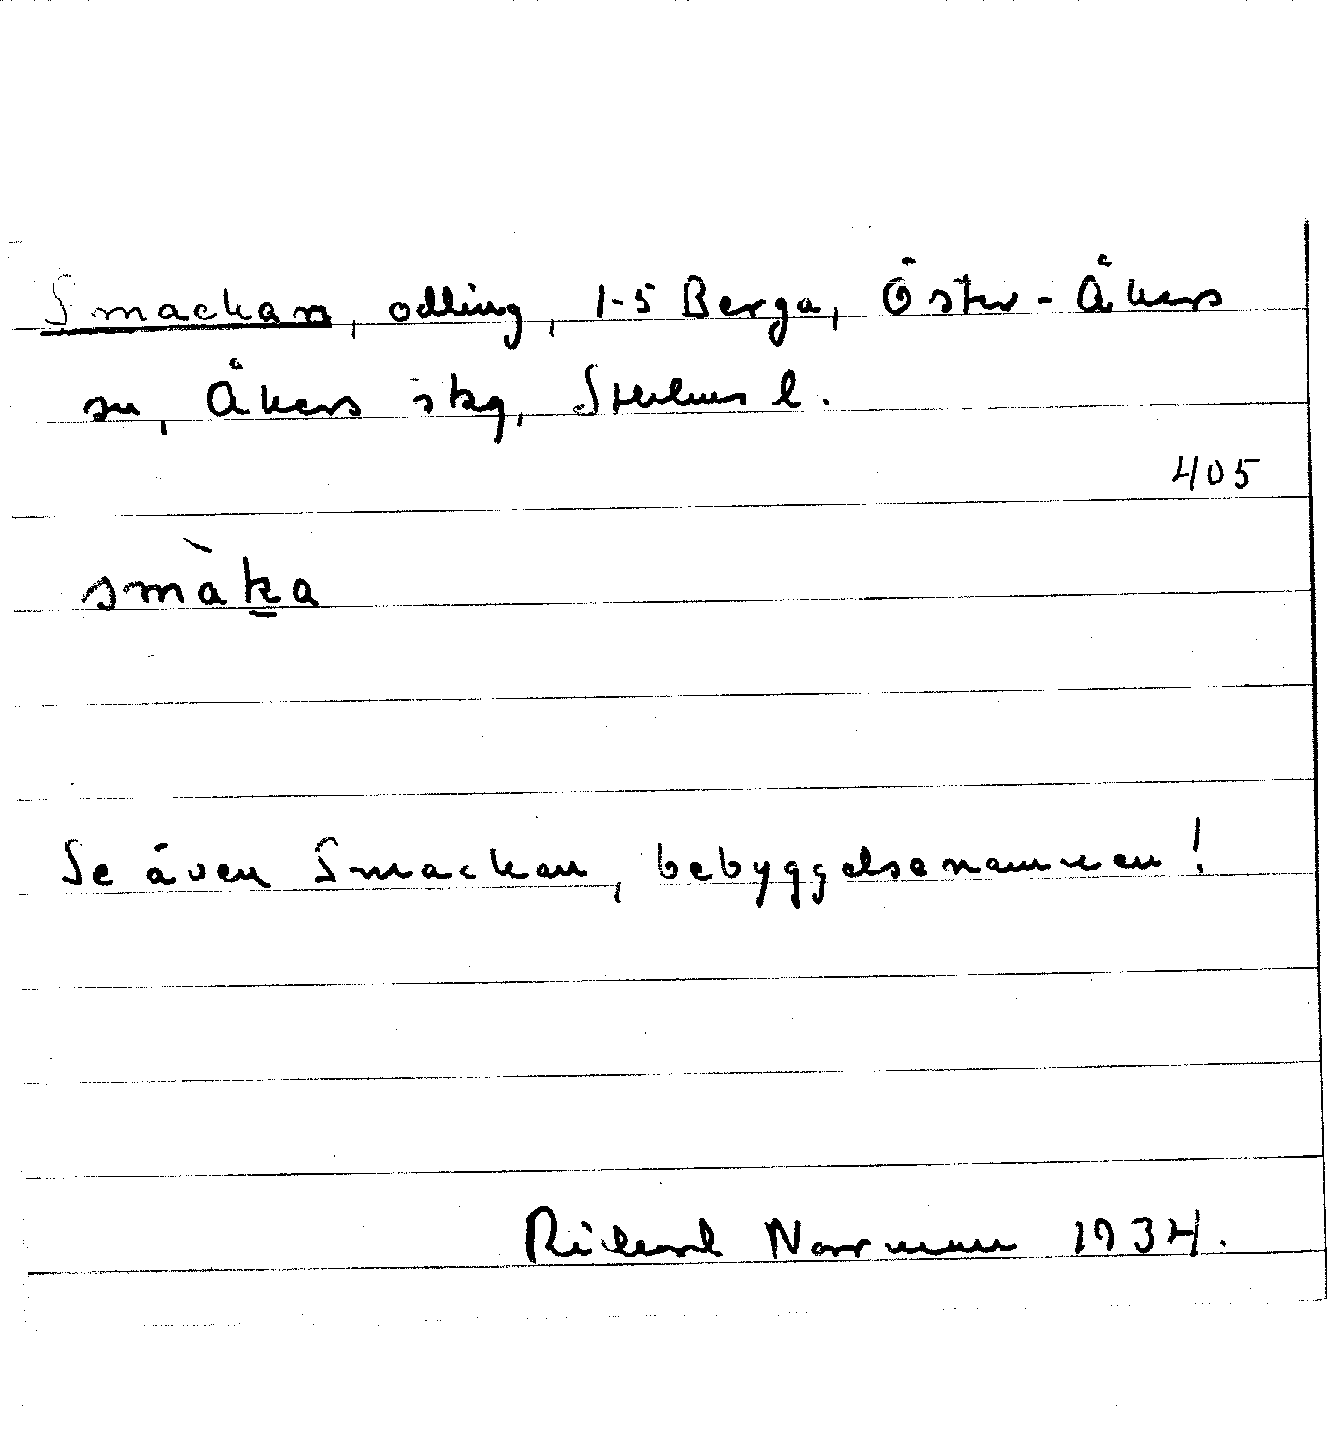 Smackan, odling, 1-5 Berga, Öster-Åkers
sn, Åkers skg, Sthlms l.
405
smàka
Se även Smackan, bebyggelsenamnen!
Richard Norrman 1934.